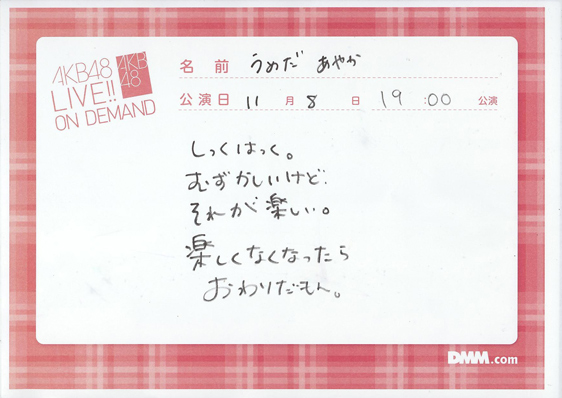 AKB48
LIVE!!
ON DEMAND
AKB
48
名前 うめだ あやか
公演日 11月8日 19:00公演
しっくはっく。
むずかしいけど、
それが楽しい。
楽しくなくなったら
おわりだもん。
DMM.com